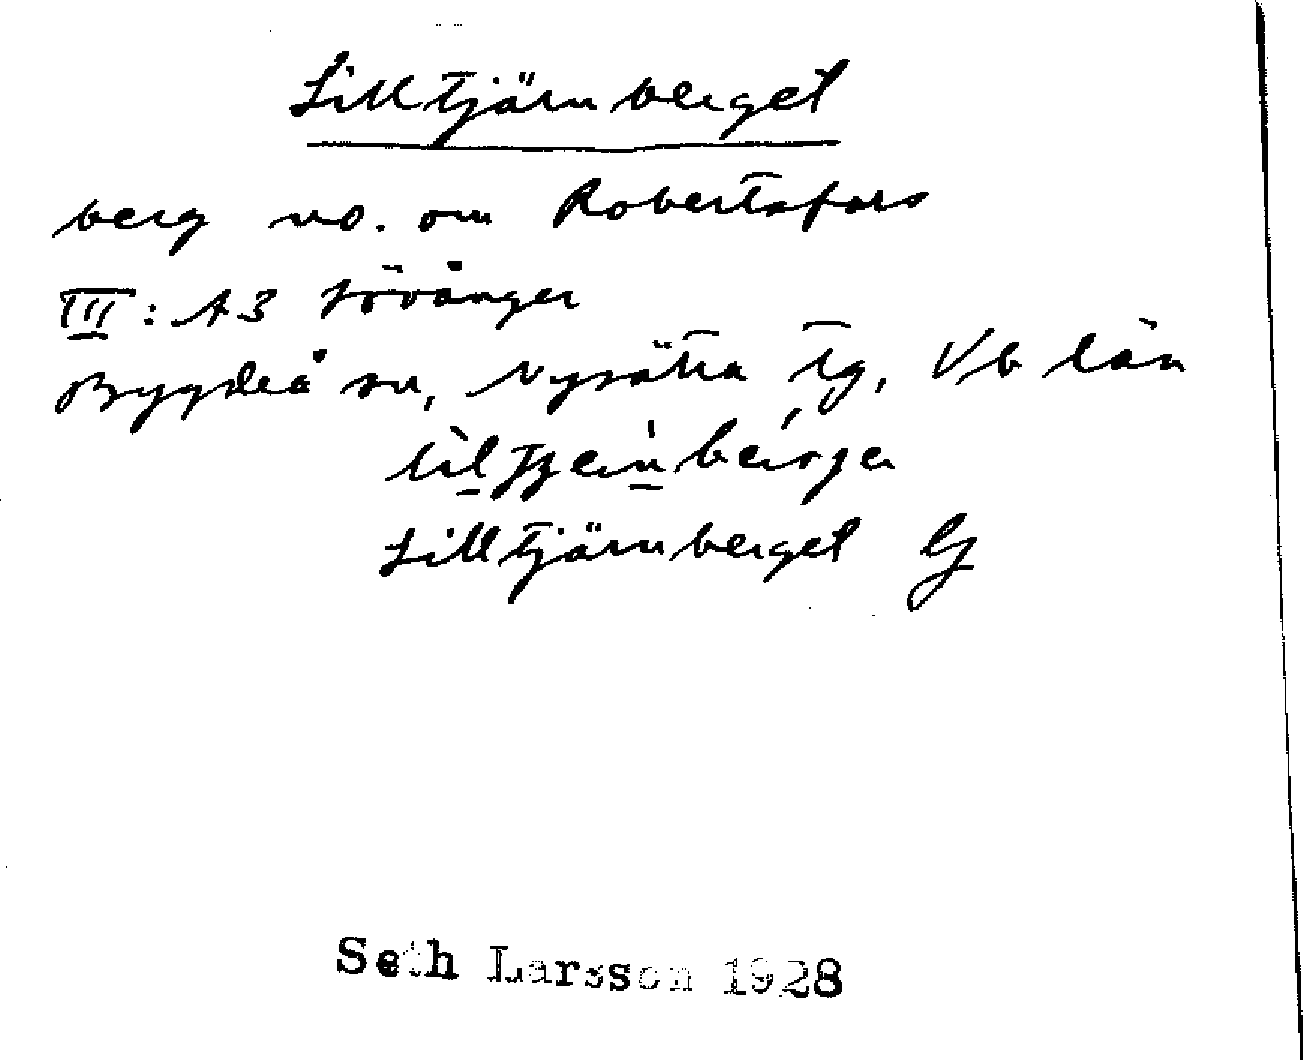 Lilltjärnberget
berg no. om Robertsfors
III: A3 Lövånger
Bygdeå sn, Nysätra tg, Vb län
Lilltjärnberget G
Seth Larsson 1928